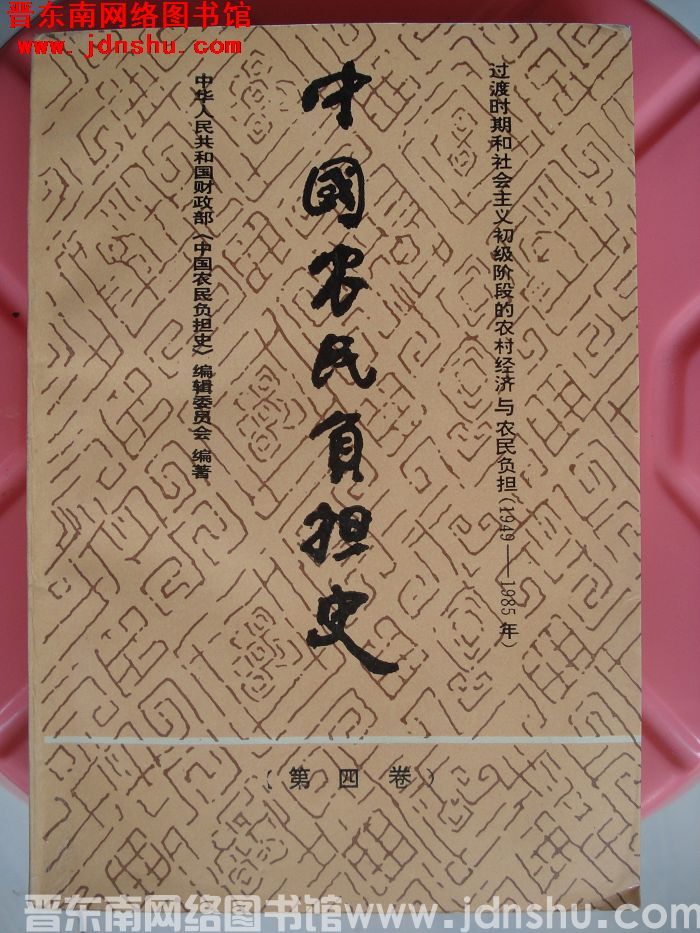 晋东南网络图书馆
www.jdnshu.com
过渡时期和社会主义初级阶段的农村经济与农民负担(1949——1985年)
中國农民负担史
中华人民共和国财政部《中国农民负担史》编辑委员会 编著
(第四卷)
晋东南网络图书馆 www.jdnshu.com